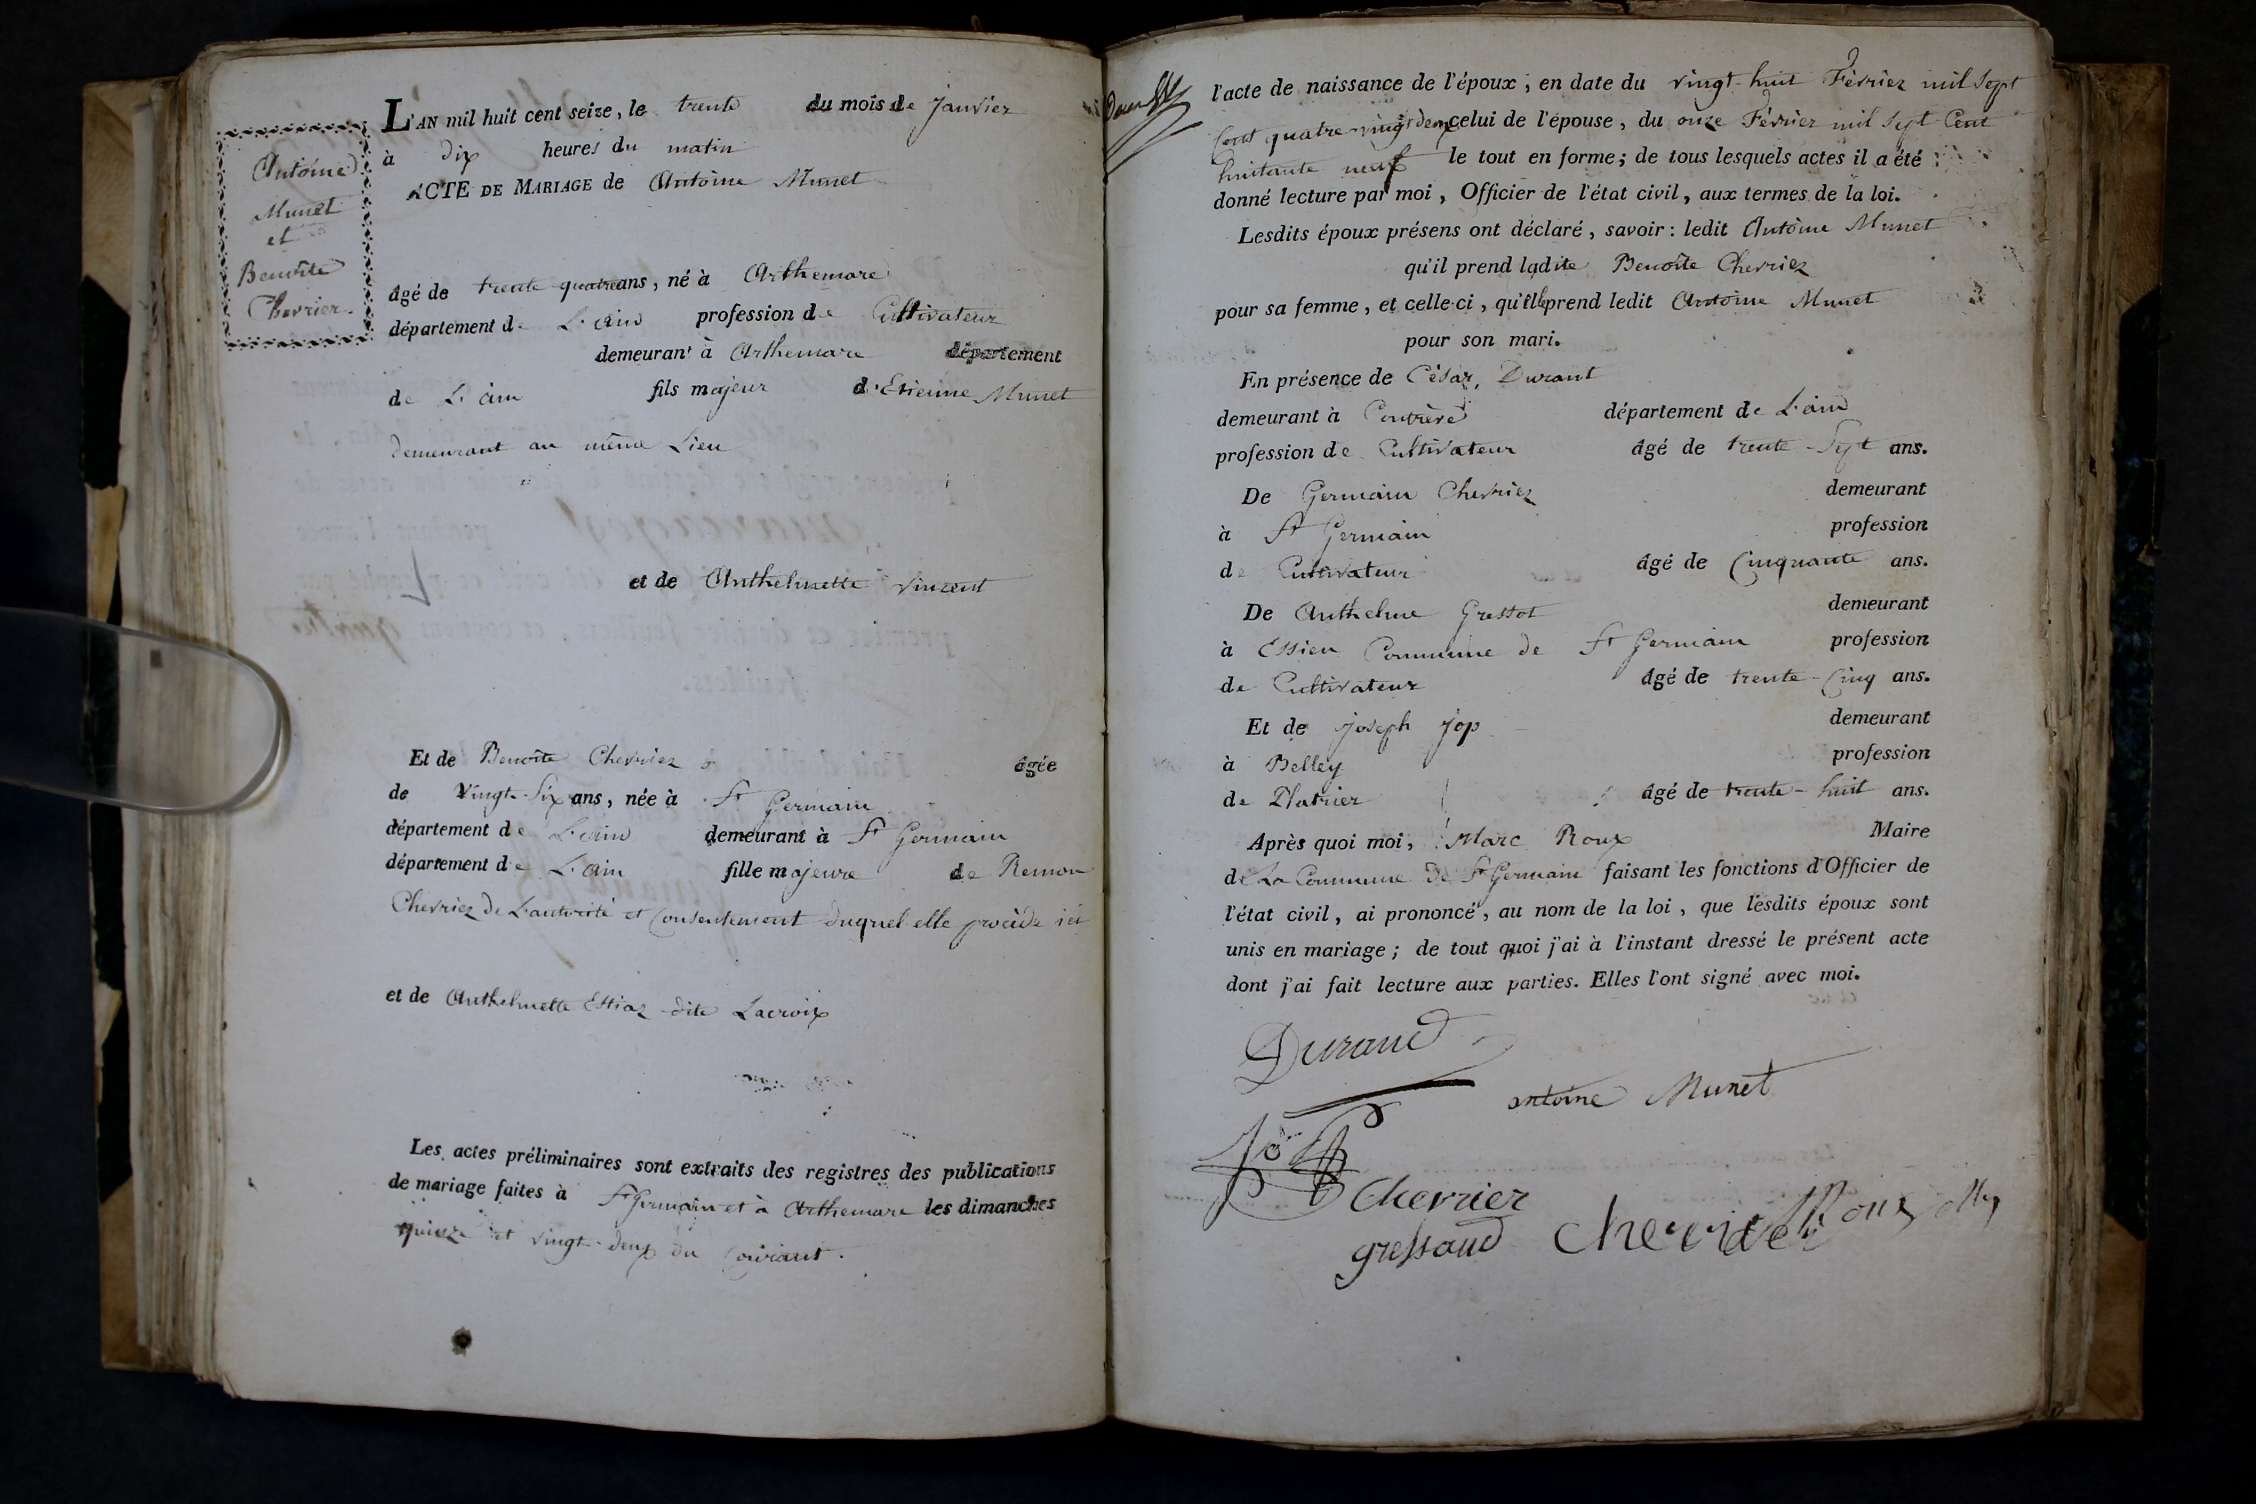 Antoine
Munet
et
Benoîte
Chevrier
L'AN mil huit cent seize, le trente du mois de Janvier
à dix heures du matin
ACTE DE MARIAGE de Antoine Munet
âgé de trente quatre ans, né à Arthemare
département de L'ain profession de Cultivateur
demeurant à Arthemare département
de L'ain fils majeur d'Etienne Munet
demeurant au même Lieu
et de Anthelmette vincent
Et de Benoîte Chevriez âgée
de Vingt-Six ans, née à St Germain
département de L'ain demeurant à St Germain
département de L'ain fille majeure de Remon
Chevriez de L'autorité et Consentement duquel elle procède ici
et de Anthelmette Estiaz dite Lacroix
Les actes préliminaires sont extraits des registres des publications
de mariage faites à St Germain et à Arthemare les dimanches
quinze et vingt-deux du Courant.
l'acte de naissance de l'époux, en date du vingt-huit Février mil Sept
Cent quatre-vingt deux celui de l'épouse, du onze Février mil Sept Cent
huitante neuf le tout en forme; de tous lesquels actes il a été
donné lecture par moi, Officier de l'état civil, aux termes de la loi.
Lesdits époux présens ont déclaré, savoir: ledit Antoine Munet
qu'il prend ladite Benoîte Chevriez
pour sa femme, et celle-ci, qu'elle prend ledit Antoine Munet
pour son mari.
En présence de César, Durant
demeurant à département de L'ain
profession de Cultivateur âgé de trente-Sept ans.
De Germain Chevriez demeurant
à St Germain profession
de Cultivateur âgé de Cinquante ans.
De Anthelme Gressot demeurant
à Essieu Commune de St Germain profession
de Cultivateur âgé de trente-Cinq ans.
Et de Joseph Jop demeurant
à Belley profession
de Platrier âgé de trente-huit ans.
Après quoi moi, Marc Roux Maire
de La Commune de St Germain faisant les fonctions d'Officier de
l'état civil, ai prononcé, au nom de la loi, que lesdits époux sont
unis en mariage; de tout quoi j'ai à l'instant dressé le présent acte
dont j'ai fait lecture aux parties. Elles l'ont signé avec moi.
Durand
antoine Munet
Chevrier
gressaud Roux